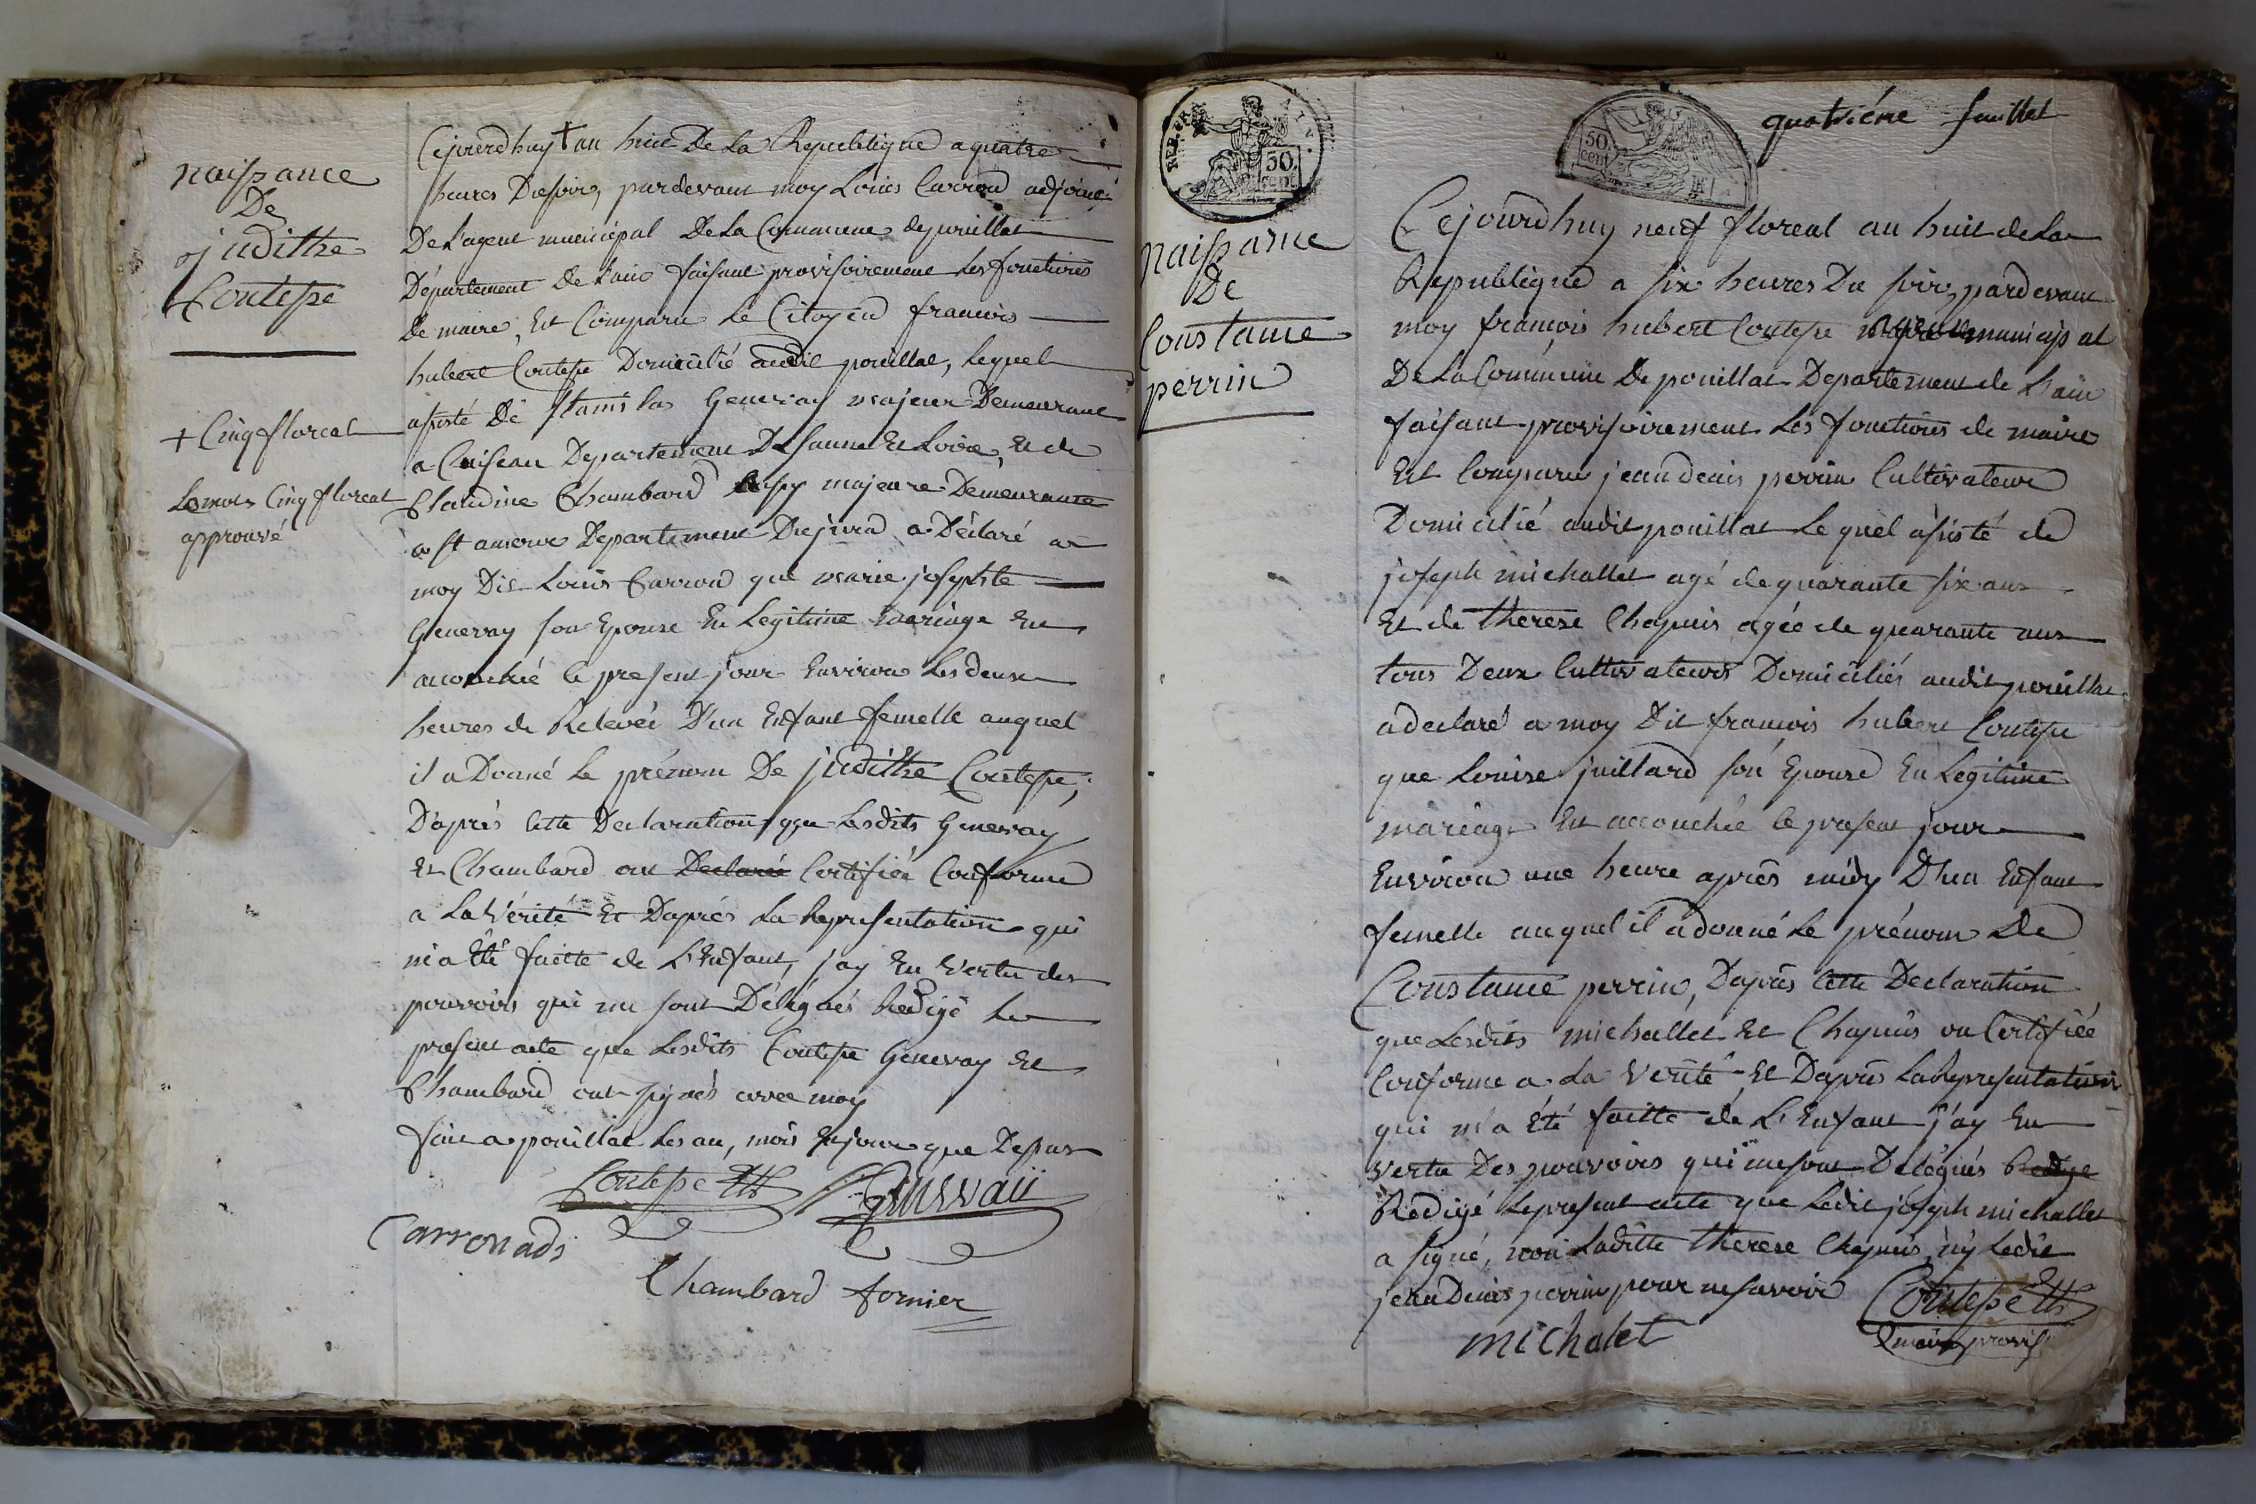 naissance
De
judithe
Coutepe
+ Cinq floreal
Le mots Cinq floreal
approuvé
Cejourdhuy + an huit De La Republique a quatre
heures Du soir, pardevant moy Louis Carron adjoint
De L'agent municipal De La Commune de pouillat
Département de L'ain faisant provisoirement Les fonctions
De maire, Est Comparu Le Citoyen francois
hubert Coutepe Domicilié audit pouillat, Lequel
assisté De stanislas Genevay majeur Demeurant
a Cuiseau Departement De Saune Et Loire, Et de
Claudine Chambard aussy majeure Demeurante
a st amour Departement Du jura a Déclaré a
moy Dit Louis Carron que marie josephte
Genevay son Epouse En Legitime mariage Est
accouchée le present jour Environ Les deux
heures de Relevée D'un Enfant femelle auquel
il a Donné Le prénom De judithe Coutepe,
D'après cette Declaration que Lesdits Genevay
et Chambard ont Declarée Certifiée Conforme
a La Vérité Et D'après La Representation qui
m'a Eté faitte de L'Enfant, j'ay En Vertu des
pouvoirs qui me sont Délégués Redigé Le
present acte que Lesdits Coutepe Genevay Et
Chambard ont signés avec moy
fait a pouillat Les an, mois Et jour que Dessus
Coutepe
Genevaÿ
Carron adj
Chambard fornier
REP. FRA.
AIN.
50.
cent
50.
cent
quatriéme feuillet
naissance
De
Constance
perrin
Cejourdhuy neuf floreal an huit de La
Republique a six heures Du soir, pardevant
moy francois hubert Coutepe agent municipal
De La Commune De pouillat Departement de L'ain
faisant provisoirement Les fonctions de maire
Est Comparu jean denis perrin Cultivateur
Domicilié audit pouillat Le quel assisté de
joseph michallet agé de quarante six ans
Et de therese Chapuis agée de quarante ans
tous Deux Cultivateurs Domiciliés audit pouillat
a declaré a moy Dit francois hubert Coutepe
que Louise juillard son Epouse En Legitime
mariage Est accouchée le present jour
Environ une heure après midy D'un Enfant
femelle auquel il a donné Le prénom De
Constance perrin, D'après Cette Declaration
que Lesdits michallet Et Chapuis on Certifiée
Conforme a La Verité Et D'après La Representation
qui m'a été faitte de L'Enfant j'ay En
Vertu Des pouvoirs qui me sont Delegués Redige
Redigé Le present acte que Ledit joseph michallet
a signé, non Laditte therese Chapuis, ny Ledit
jean Denis perrin pour ne savoir
Coutepe
michalet
maire provis